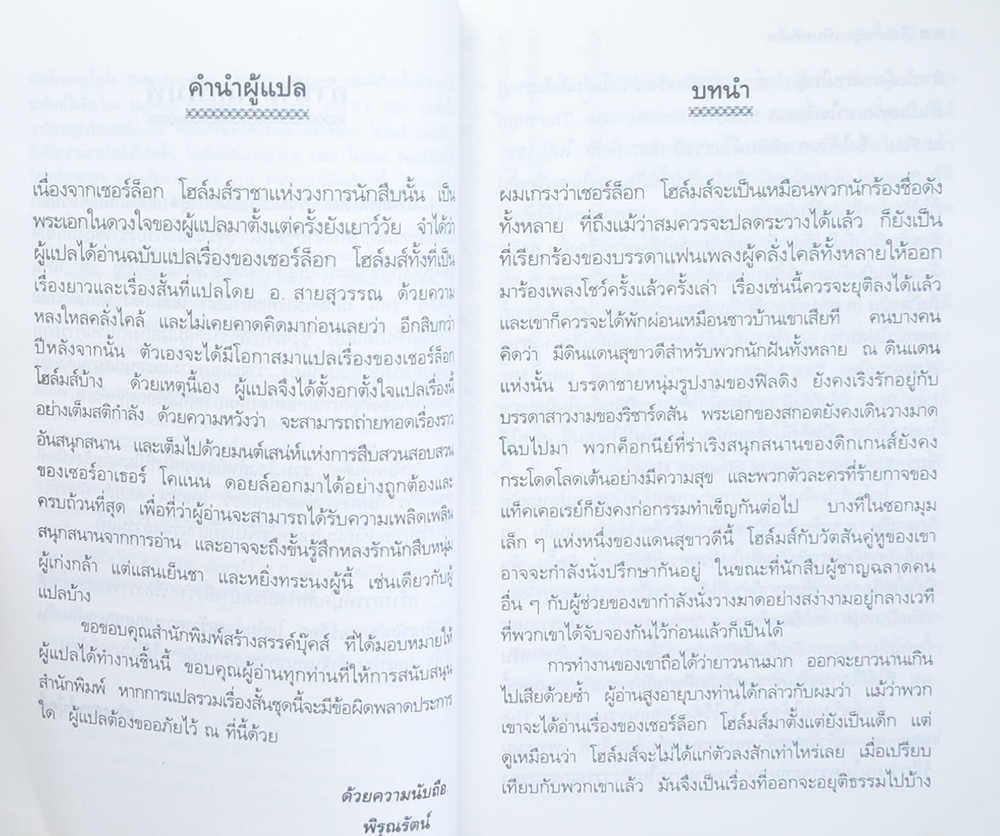 คำนำผู้แปล
เนื่องจากเชอร์ล็อก โฮล์มส์ราชาแห่งวงการนักสืบนั้น เป็น
พระเอกในดวงใจของผู้แปลมาตั้งแต่ครั้งยังเยาว์วัย จำได้ว่า
ผู้แปลได้อ่านฉบับแปลเรื่องของเชอร์ล็อก โฮล์มส์ทั้งที่เป็น
เรื่องยาวและเรื่องสั้นที่แปลโดย อ. สายสุวรรณ ด้วยความ
หลงใหลคลั่งไคล้ และไม่เคยคาดคิดมาก่อนเลยว่า อีกสิบกว่า
ปีหลังจากนั้น ตัวเองจะได้มีโอกาสมาแปลเรื่องของเชอร์ล็อก
โฮล์มส์บ้าง ด้วยเหตุนี้เอง ผู้แปลจึงได้ตั้งอกตั้งใจแปลเรื่องนี้
อย่างเต็มสติกำลัง ด้วยความหวังว่า จะสามารถถ่ายทอดเรื่องราว
อันสนุกสนาน และเต็มไปด้วยมนต์เสน่ห์แห่งการสืบสวนสอบสวน
ของเซอร์อาเธอร์ โคแนน ดอยล์ออกมาได้อย่างถูกต้องและ
ครบถ้วนที่สุด เพื่อที่ว่าผู้อ่านจะสามารถได้รับความเพลิดเพลิน
สนุกสนานจากการอ่าน และอาจจะถึงขั้นรู้สึกหลงรักนักสืบหนุ่ม
ผู้เก่งกล้า แต่แสนเย็นชา และหยิ่งทระนงผู้นี้ เช่นเดียวกับผู้
แปลบ้าง
ขอขอบคุณสำนักพิมพ์สร้างสรรค์บุ๊คส์ ที่ได้มอบหมายให้
ผู้แปลได้ทำงานชิ้นนี้ ขอบคุณผู้อ่านทุกท่านที่ให้การสนับสนุน
สำนักพิมพ์ หากการแปลรวมเรื่องสั้นชุดนี้จะมีข้อผิดพลาดประการ
ใด ผู้แปลต้องขออภัยไว้ ณ ที่นี้ด้วย
ด้วยความนับถือ
พิรุณรัตน์
บทนำ
ผมเกรงว่าเชอร์ล็อก โฮล์มส์จะเป็นเหมือนพวกนักร้องชื่อดัง
ทั้งหลาย ที่ถึงแม้ว่าสมควรจะปลดระวางได้แล้ว ก็ยังเป็น
ที่เรียกร้องของบรรดาแฟนเพลงผู้คลั่งไคล้ทั้งหลายให้ออก
มาร้องเพลงโชว์ครั้งแล้วครั้งเล่า เรื่องเช่นนี้ควรจะยุติลงได้แล้ว
และเขาก็ควรจะได้พักผ่อนเหมือนชาวบ้านเขาเสียที คนบางคน
คิดว่า มีดินแดนสุขาวดีสำหรับพวกนักฝันทั้งหลาย ณ ดินแดน
แห่งนั้น บรรดาชายหนุ่มรูปงามของฟิลดิง ยังคงเริงรักอยู่กับ
บรรดาสาวงามของริชาร์ดสัน พระเอกของสกอตยังคงเดินวางมาด
โฉบไปมา พวกค็อกนีย์ที่ร่าเริงสนุกสนานของดิกเกนส์ยังคง
กระโดดโลดเต้นอย่างมีความสุข และพวกตัวละครที่ร้ายกาจของ
แท็คเคอเรย์ก็ยังคงก่อกรรมทำเข็ญกันต่อไป บางทีในซอกมุม
เล็ก ๆ แห่งหนึ่งของแดนสุขาวดีนี้ โฮล์มส์กับวัตสันคู่หูของเขา
อาจจะกำลังนั่งปรึกษากันอยู่ ในขณะที่นักสืบผู้ชาญฉลาดคน
อื่น ๆ กับผู้ช่วยของเขากำลังนั่งวางมาดอย่างสง่างามอยู่กลางเวที
ที่พวกเขาได้จับจองกันไว้ก่อนแล้วก็เป็นได้
การทำงานของเขาถือได้ว่ายาวนานมาก ออกจะยาวนานเกิน
ไปเสียด้วยซ้ำ ผู้อ่านสูงอายุบางท่านได้กล่าวกับผมว่า แม้ว่าพวก
เขาจะได้อ่านเรื่องของเชอร์ล็อก โฮล์มส์มาตั้งแต่ยังเป็นเด็ก แต่
ดูเหมือนว่า โฮล์มส์จะไม่ได้แก่ตัวลงสักเท่าไหร่เลย เมื่อเปรียบ
เทียบกับพวกเขาแล้ว มันจึงเป็นเรื่องที่ออกจะอยุติธรรมไปบ้าง